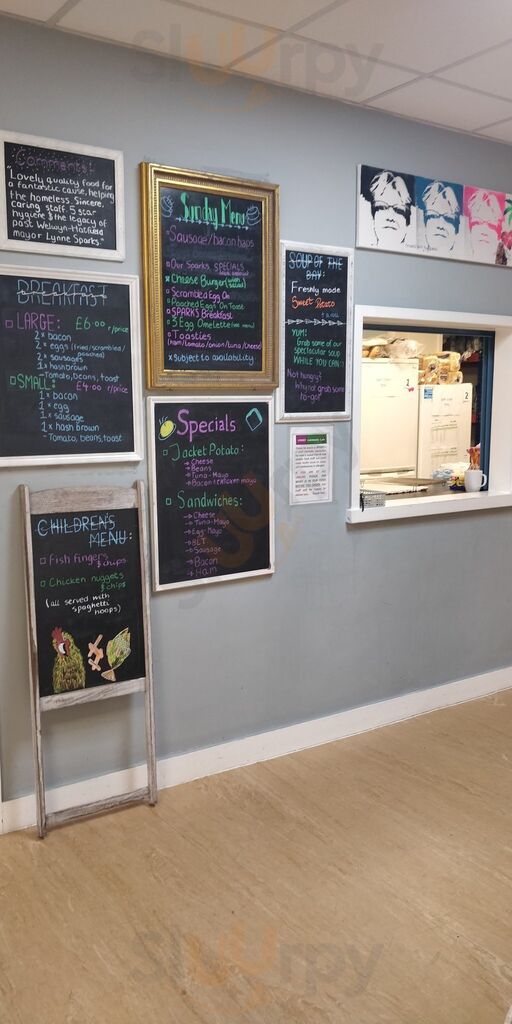 Comments:
"Lovely quality food for
a fantastic cause, helping
the homeless. Sincere
caring staff. 5 star
hygiene & the legacy of
past Welwyn-Hatfield
mayor Lynne Sparks."
BREAKFAST
LARGE: £6.00 r/price
2 x bacon
2 x eggs (fried/scrambled/
poached)
2 x sausages
1 x hashbrown
-Tomato, beans, toast
SMALL: £4.00 r/price
1 x bacon
1 x egg
1 x sausage
1 x hash brown
-Tomato, beans, toast
CHILDREN'S
MENU:
Fish fingers
& chips
Chicken nuggets
& chips
(all served with
spaghetti
hoops)
Sundry Menu
Sausage/bacon baps
Our Sparks SPECIALS
Cheese Burger
Scrambled Egg On
Poached Eggs On Toast
SPARKS Breakfast
3 Egg Omelette
Toasties
(ham/tomato/onion/tuna/cheese)
*subject to availability
Specials
Jacket Potato:
Cheese
Beans
Tuna-Mayo
Bacon & Chicken mayo
Sandwiches:
Cheese
Tuna-Mayo
Egg-Mayo
BLT
Sausage
Bacon
Ham
SOUP OF THE
DAY:
Freshly made
Sweet Potato
YUM!
Grab some of our
spectacular soup
WHILE YOU CAN!!
Not hungry?
Why not grab some
to-go!!
2
2
Sluurpy
Sluurpy